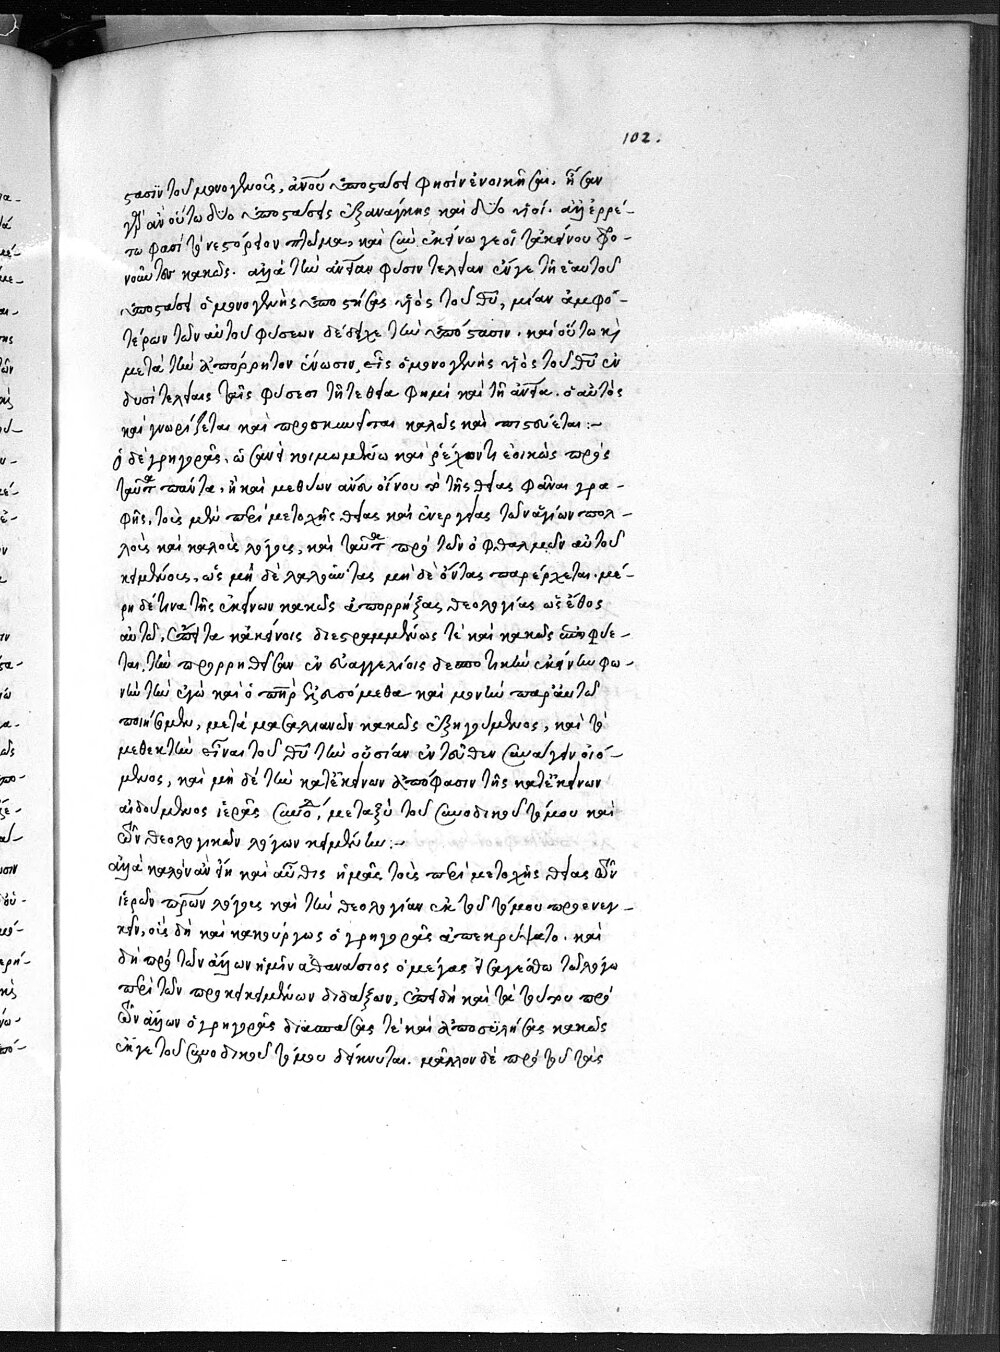 102.
στασιν τοῦ μονογενοῦς, ἀνου ὑποστάσει φησὶν ἐνοικῆσαι. ἦσαν
γὰρ ἂν οὕτω δύο ὑποστάσεις ἐξανάγκης καὶ δύο υἱοί. ἀλλ' ἐρρέ-
τω φασὶ τὸ νεστορίου πτῶμα, καὶ σὺν ἐκείνω γε οἱ τἀκείνου φρο-
νοῦντες κακῶς. ἀλλὰ τὴν φύσιν τελείαν ἐν γε τῇ ἑαυτοῦ
ὑποστάσει ὁ μονογενὴς ὑποστήσας υἱὸς τοῦ θυ, μίαν ἀμφο-
τέρων τῶν αὐτοῦ φύσεων δέδειχε τὴν ὑπόστασιν. καὶ οὕτω καὶ
μετὰ τὴν ἀπόρρητον ἕνωσιν, εἷς ὁ μονογενὴς υἱὸς τοῦ θυ ἐν
δυσὶ τελείαις ταῖς φύσεσι τῇ τε θεία φημὶ καὶ τῇ ὁ αὐτὸς
καὶ γνωρίζεται καὶ προσκυνεῖται καλῶς καὶ πιστεύεται:-
ὁ δὲ γρηγορᾶς, ὡσανεὶ κοιμωμένω καὶ ῥέγχοντι ἐοικὼς πρὸς
ταῦτα πάντα, ἢ καὶ μεθύων ἄνευ οἴνου τὸ τῆς θείας φᾶναι γρα-
φῆς, τοὺς μὲν περὶ μετοχῆς θείας καὶ ἐνεργείας τῶν ἁγίων πολ-
λοὺς καὶ καλοὺς λόγους, καὶ ταῦτα πρὸ τῶν ὀφθαλμῶν αὐτοῦ
κειμένους, ὡς μὴ δὲ λαλοῦντας μὴ δὲ ὄντας παρέρχεται. μέ-
ρη δέ τινα τῆς ἐκείνων κακῶς ἀπορρήξας θεολογίας ὡς ἔθος
αὐτῶ, ἔπειτα κἀκείνοις διεστραμμένως τὲ καὶ κακῶς ἐπιφύε-
ται, τὴν προρρηθεῖσαν ἐν εὐαγγελίοις δεσποτικὴν ἐκείνην φω-
νὴν τὴν ἐγὼ καὶ ὁ πηρ ἐλευσόμεθα καὶ μονὴν παρ' αὐτῶ
ποιήσομεν, μετὰ μασαλιανῶν κακῶς ἐξηγούμενος, καὶ τὸ
μεθεκτὴν εἶναι τοῦ θυ τὴν οὐσίαν ἐντεῦθεν συνάγειν οἰό-
μενος, καὶ μὴ δὲ τὴν κατ' ἐκείνων ἀπόφασιν τῆς κατ' ἐκείνων
αἰδούμενος ἱερᾶς συνόδου, μεταξὺ τοῦ συνοδικοῦ τόμου καὶ
τῶν θεολογικῶν λόγων κειμένην:-
ἀλλὰ καλὸν ἂν εἴη καὶ αὖθις ἡμᾶς τοὺς περὶ μετοχῆς θείας τῶν
ἱερῶν πρων λόγους καὶ τὴν θεολογίαν ἐκ τοῦ τόμου προενεγ-
κεῖν, οὓς δὴ καὶ κακούργως ὁ γρηγορᾶς ἀπεκρύψατο. καὶ
δὴ πρὸ τῶν ἄλλων ἡμῖν ἀθανάσιος ὁ μέγας εἰσαγέσθω τῶ λόγω
περὶ τῶν προκειμένων διδάξων, ἐπειδὴ καὶ τὰ τούτου πρὸ
τῶν ἄλλων ὁ γρηγορᾶς διασπάσας τὲ καὶ ἀποσυλήσας κακῶς
ἔκ γε τοῦ συνοδικοῦ τόμου δείκνυται. μᾶλλον δὲ πρὸ τοῦ τὰς